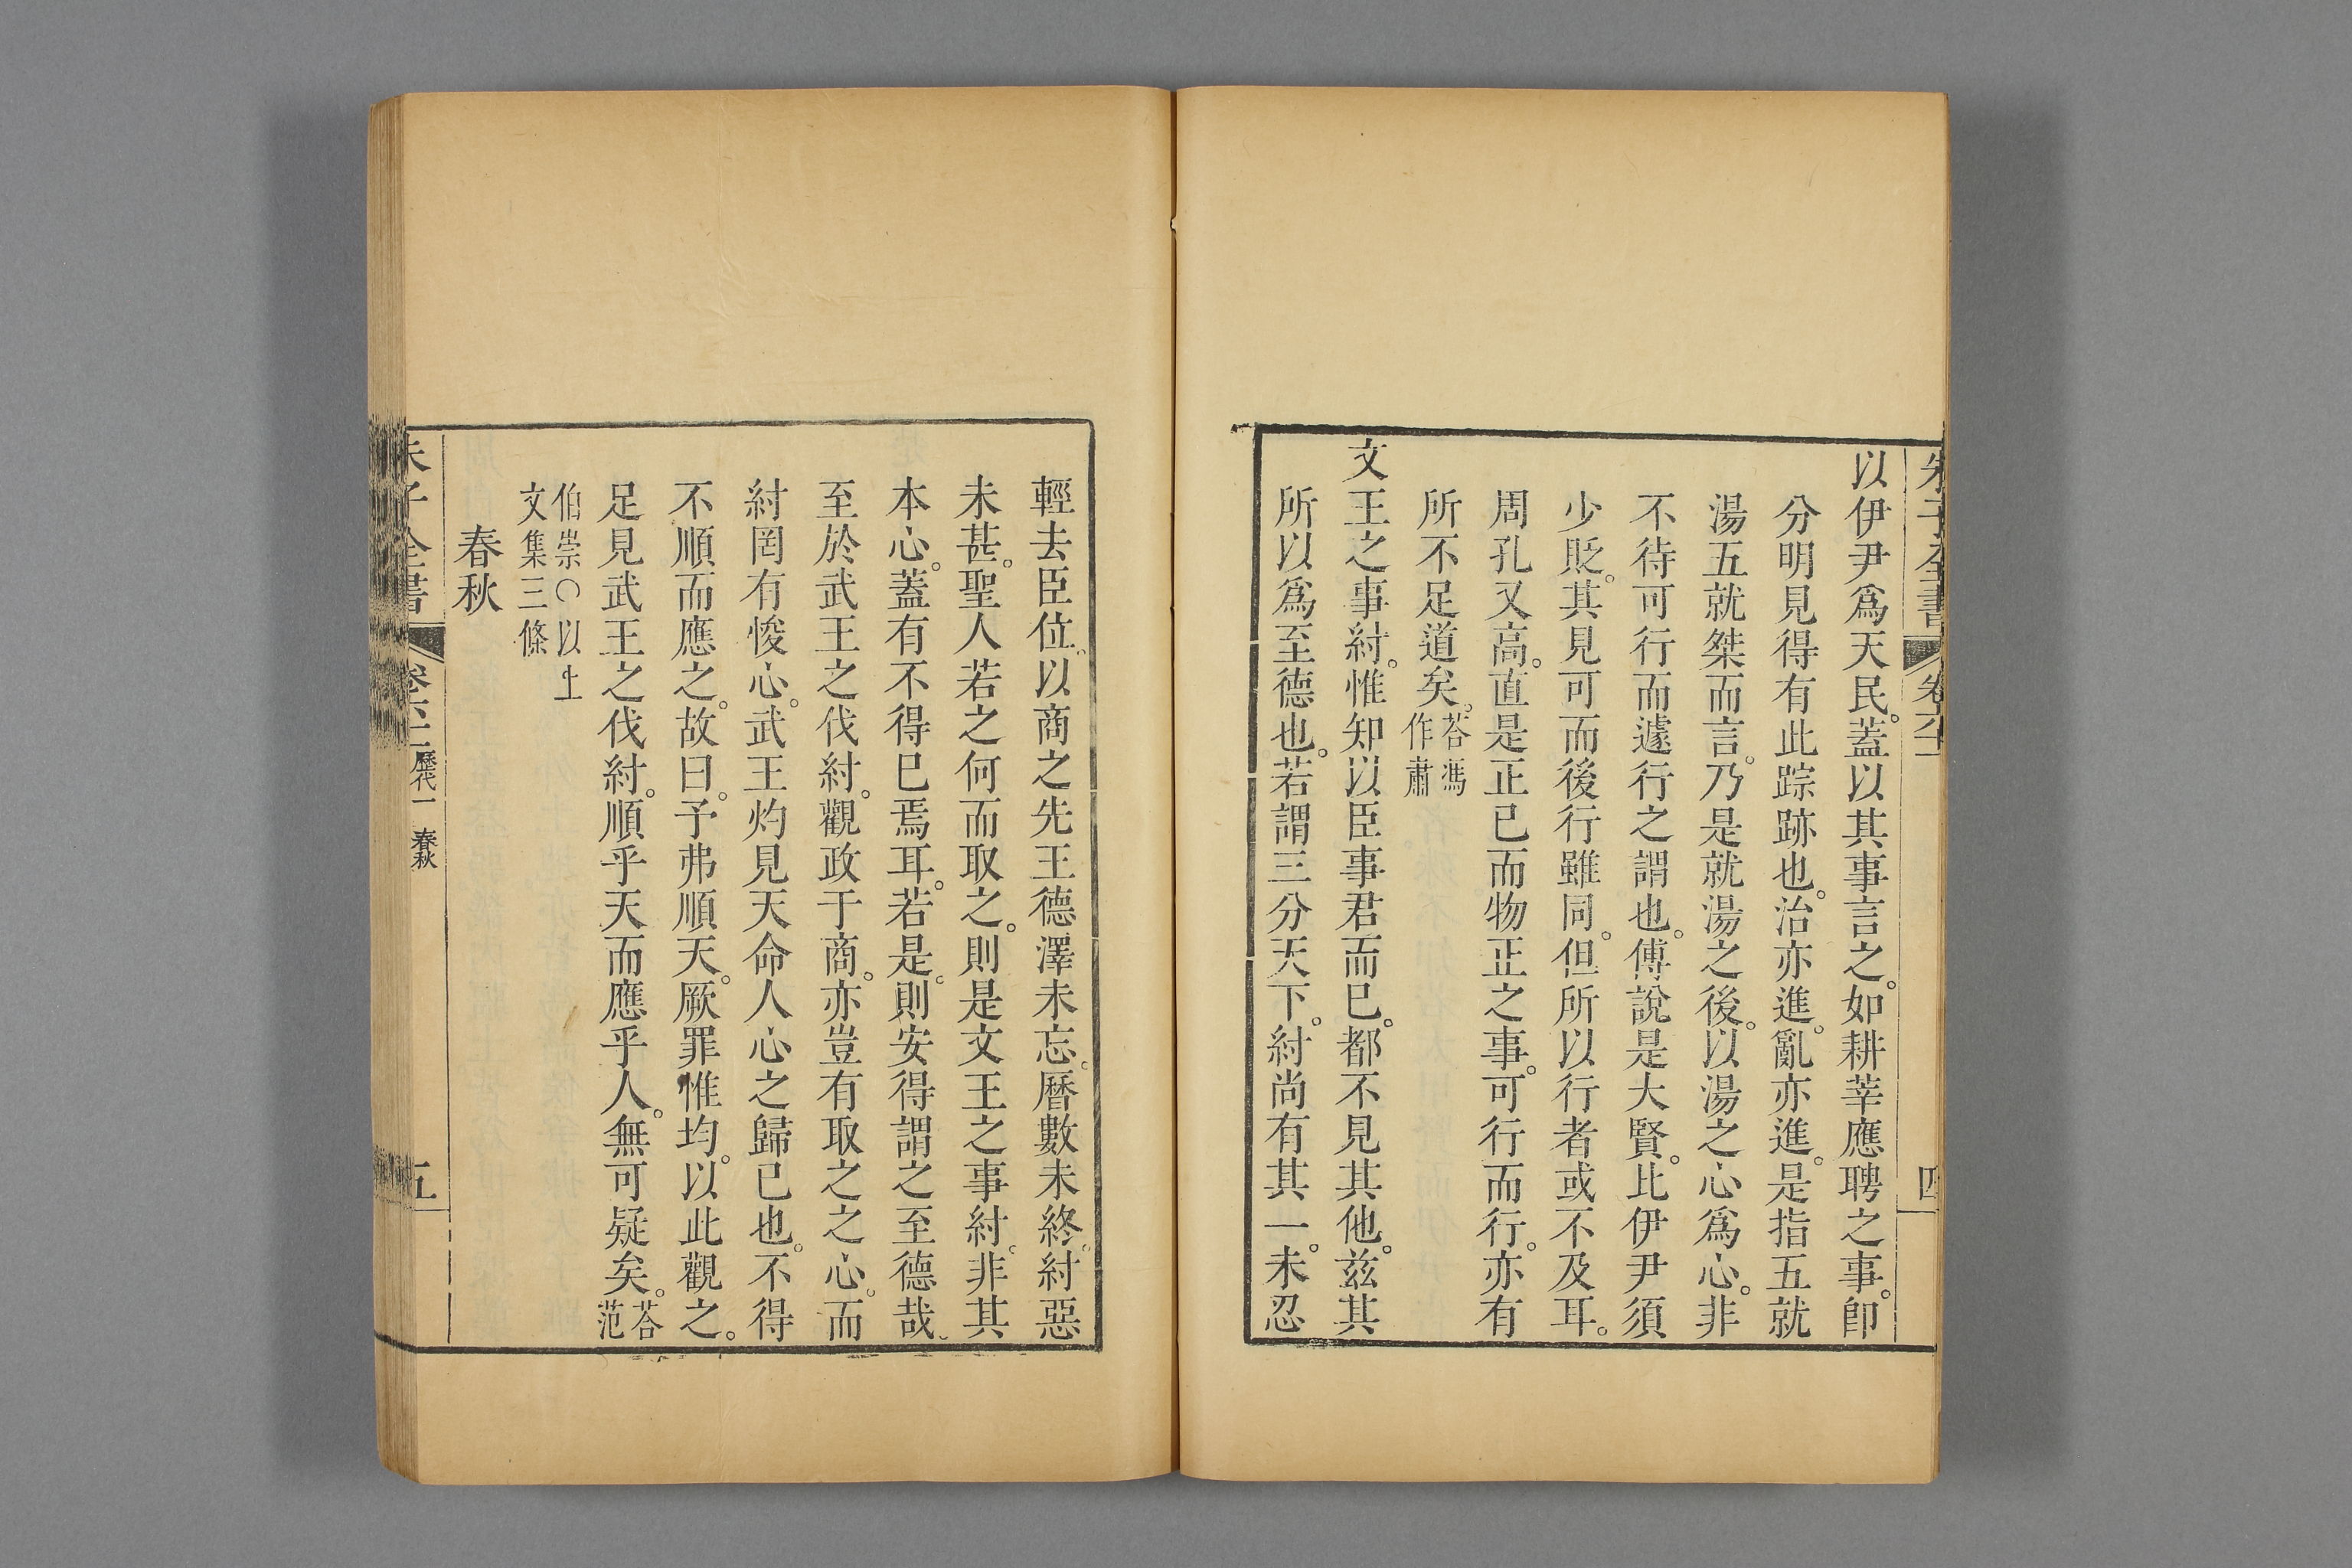 朱子全書 卷六十一 四
以伊尹爲天民。蓋以其事言之。如耕莘應聘之事。卽
分明見得有此踪跡也。治亦進。亂亦進。是指五就
湯五就桀而言。乃是就湯之後。以湯之心爲心。非
不待可行而遽行之謂也。傅說是大賢。比伊尹須
少貶。其見可而後行雖同。但所以行者或不及耳。
周孔又高。直是正已而物正之事。可行而行。亦有
所不足道矣。荅馮
作肅
文王之事紂。惟知以臣事君而已。都不見其他。兹其
所以爲至德也。若謂三分天下。紂尚有其一。未忍
輕去臣位。以商之先王德澤未忘。曆數未終。紂惡
未甚。聖人若之何而取之。則是文王之事紂。非其
本心。蓋有不得已焉耳。若是。則安得謂之至德哉。
至於武王之伐紂。觀政于商。亦豈有取之之心。而
紂罔有悛心。武王灼見天命人心之歸已也。不得
不順而應之。故曰。予弗順天。厥罪惟均。以此觀之。
足見武王之伐紂。順乎天而應乎人。無可疑矣。荅
范
伯崇〇以上
文集三條
春秋
朱子全書 歷代一 春秋 五